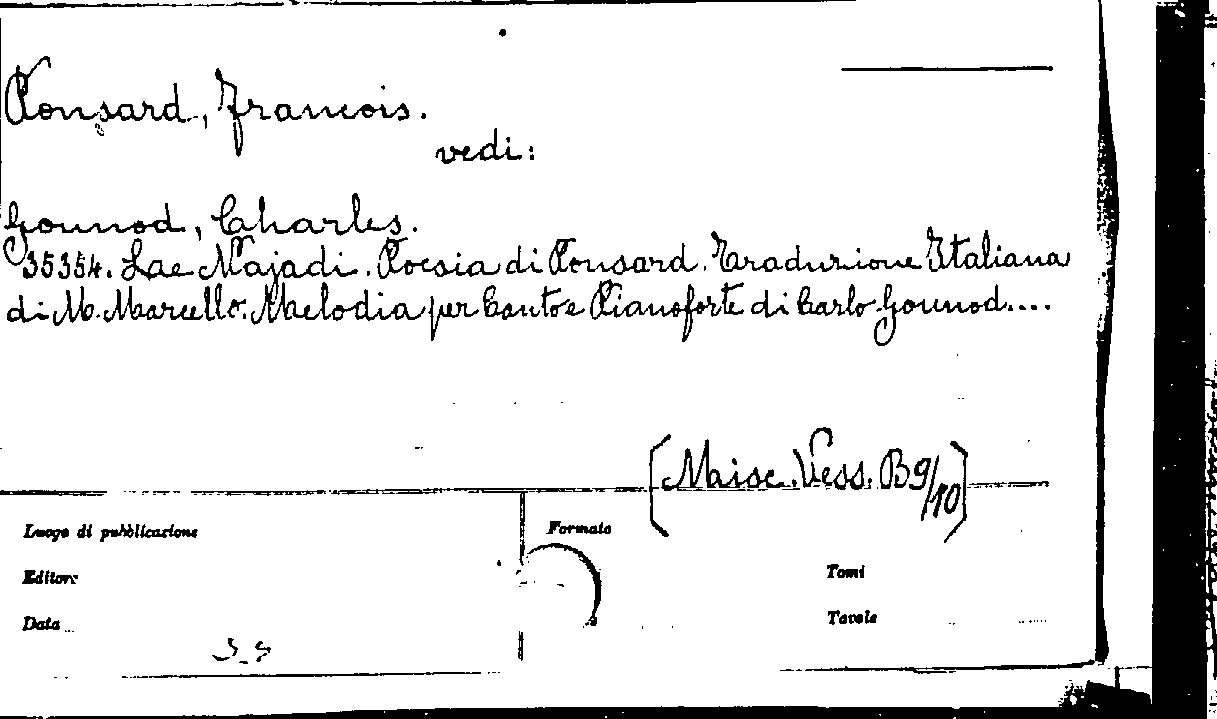 Ponsard, Francois.
vedi:
Gounod, Charles.
35354. Lae Najadi. Poesia di Ponsard. Traduzione Italiana
di M. Marcello. Melodia per Canto e Pianoforte di Carlo Gounod....
[Maisc. Vess. B9/10]
Luogo di pubblicazione
Formato
Editore
Tomi
Data
Tavole